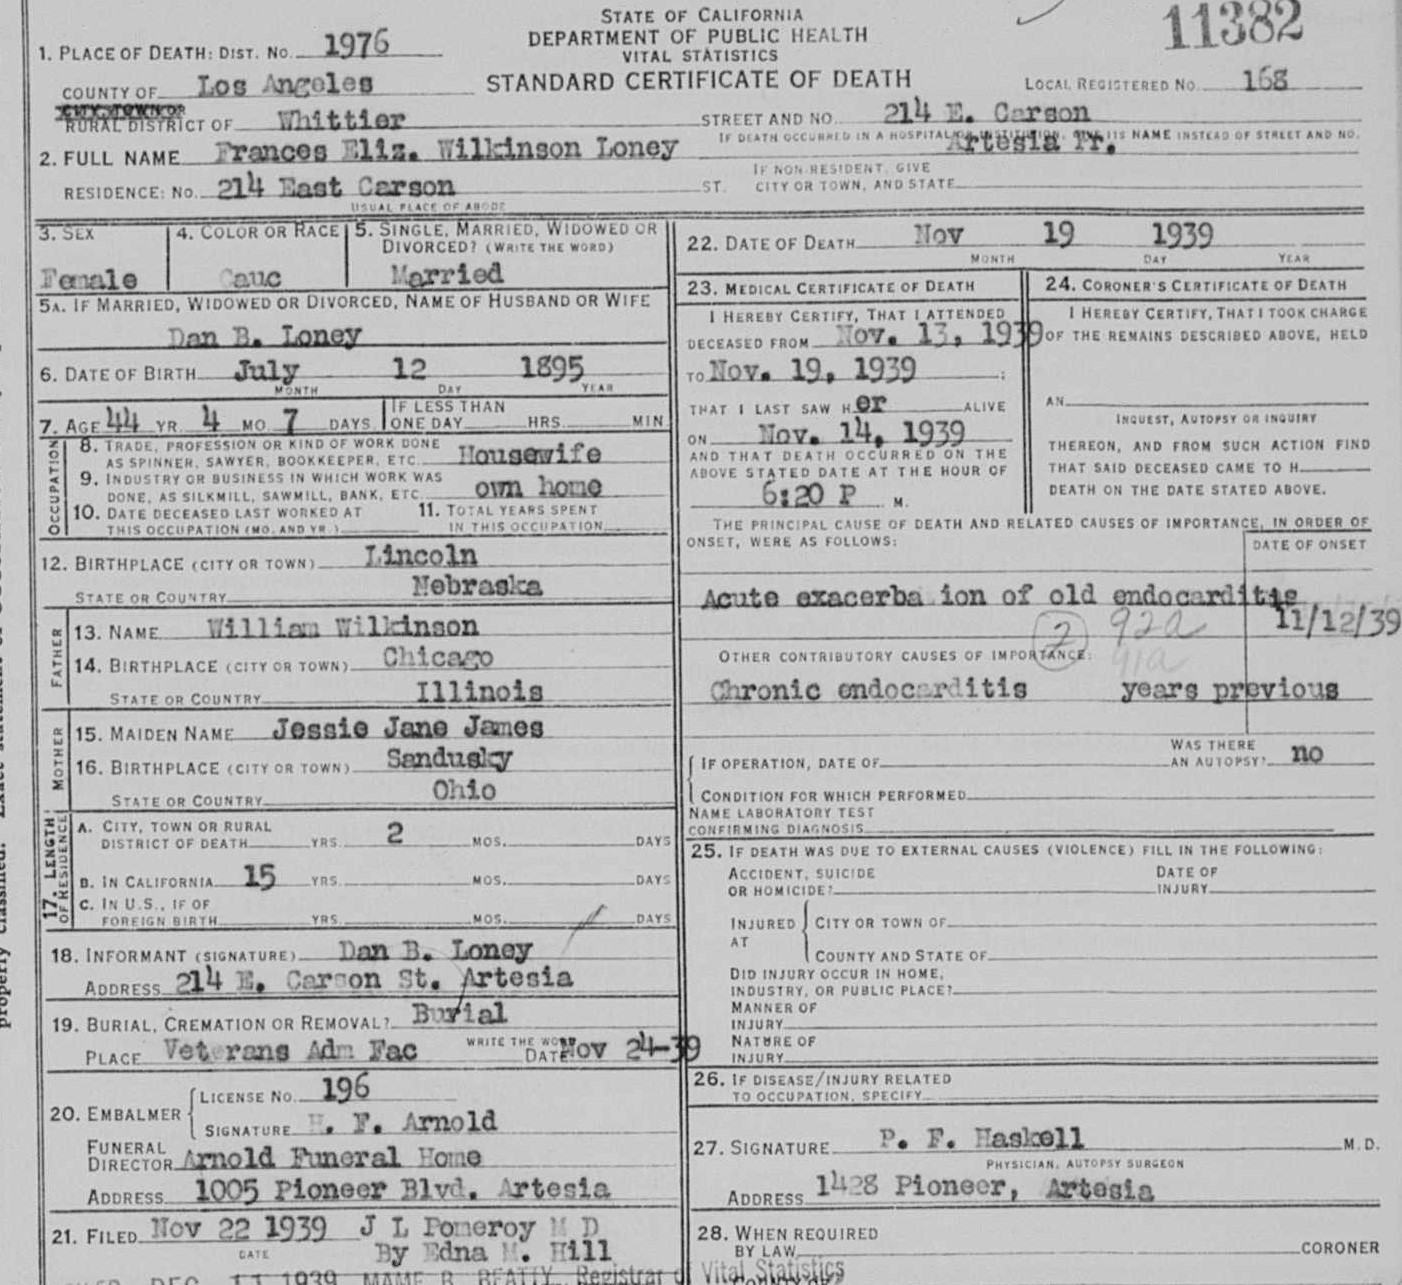 STATE OF CALIFORNIA
DEPARTMENT OF PUBLIC HEALTH
VITAL STATISTICS
STANDARD CERTIFICATE OF DEATH
11382
1. PLACE OF DEATH: DIST. NO. 1976
LOCAL REGISTERED NO. 168
COUNTY OF Los Angeles
CITY, TOWN OR
RURAL DISTRICT OF Whittier
STREET AND NO. 214 E. Carson
IF DEATH OCCURRED IN A HOSPITAL OR INSTITUTION, GIVE ITS NAME INSTEAD OF STREET AND NO.
Artesia Pr.
2. FULL NAME Frances Eliz. Wilkinson Loney
RESIDENCE: NO. 214 East Carson ST.
USUAL PLACE OF ABODE
IF NON-RESIDENT, GIVE
CITY OR TOWN, AND STATE
3. SEX
Female
4. COLOR OR RACE
Cauc
5. SINGLE, MARRIED, WIDOWED OR
DIVORCED? (WRITE THE WORD)
Married
5A. IF MARRIED, WIDOWED OR DIVORCED, NAME OF HUSBAND OR WIFE
Dan B. Loney
6. DATE OF BIRTH July 12 1895
MONTH DAY YEAR
7. AGE 44 YR. 4 MO. 7 DAYS
IF LESS THAN
ONE DAY HRS. MIN
OCCUPATION
8. TRADE, PROFESSION OR KIND OF WORK DONE
AS SPINNER, SAWYER, BOOKKEEPER, ETC. Housewife
9. INDUSTRY OR BUSINESS IN WHICH WORK WAS
DONE, AS SILKMILL, SAWMILL, BANK, ETC. own home
10. DATE DECEASED LAST WORKED AT
THIS OCCUPATION (MO. AND YR.)
11. TOTAL YEARS SPENT
IN THIS OCCUPATION
12. BIRTHPLACE (CITY OR TOWN) Lincoln
STATE OR COUNTRY Nebraska
FATHER
13. NAME William Wilkinson
14. BIRTHPLACE (CITY OR TOWN) Chicago
STATE OR COUNTRY Illinois
MOTHER
15. MAIDEN NAME Jessie Jane James
16. BIRTHPLACE (CITY OR TOWN) Sandusky
STATE OR COUNTRY Ohio
17. LENGTH
OF RESIDENCE
A. CITY, TOWN OR RURAL
DISTRICT OF DEATH YRS. 2 MOS. DAYS
B. IN CALIFORNIA 15 YRS. MOS. DAYS
C. IN U.S., IF OF
FOREIGN BIRTH YRS. MOS. DAYS
18. INFORMANT (SIGNATURE) Dan B. Loney
ADDRESS 214 E. Carson St. Artesia
19. BURIAL, CREMATION OR REMOVAL? Burial
WRITE THE WORD
PLACE Veterans Adm Fac DATE Nov 24-39
20. EMBALMER
LICENSE NO. 196
SIGNATURE H. F. Arnold
FUNERAL
DIRECTOR Arnold Funeral Home
ADDRESS 1005 Pioneer Blvd. Artesia
21. FILED Nov 22 1939 J L Pomeroy M D
DATE By Edna M. Hill
22. DATE OF DEATH Nov 19 1939
MONTH DAY YEAR
23. MEDICAL CERTIFICATE OF DEATH
I HEREBY CERTIFY, THAT I ATTENDED
DECEASED FROM Nov. 13, 1939
TO Nov. 19, 1939 ;
THAT I LAST SAW HER ALIVE
ON Nov. 14, 1939
AND THAT DEATH OCCURRED ON THE
ABOVE STATED DATE AT THE HOUR OF
6:20 P M.
24. CORONER'S CERTIFICATE OF DEATH
I HEREBY CERTIFY, THAT I TOOK CHARGE
OF THE REMAINS DESCRIBED ABOVE, HELD
AN
INQUEST, AUTOPSY OR INQUIRY
THEREON, AND FROM SUCH ACTION FIND
THAT SAID DECEASED CAME TO H
DEATH ON THE DATE STATED ABOVE.
THE PRINCIPAL CAUSE OF DEATH AND RELATED CAUSES OF IMPORTANCE, IN ORDER OF
ONSET, WERE AS FOLLOWS:
DATE OF ONSET
Acute exacerba ion of old endocarditis
11/12/39
2 92a
91a
OTHER CONTRIBUTORY CAUSES OF IMPORTANCE:
Chronic endocarditis years previous
IF OPERATION, DATE OF
WAS THERE
AN AUTOPSY? no
CONDITION FOR WHICH PERFORMED
NAME LABORATORY TEST
CONFIRMING DIAGNOSIS
25. IF DEATH WAS DUE TO EXTERNAL CAUSES (VIOLENCE) FILL IN THE FOLLOWING:
ACCIDENT, SUICIDE
OR HOMICIDE?
DATE OF
INJURY
INJURED
AT
CITY OR TOWN OF
COUNTY AND STATE OF
DID INJURY OCCUR IN HOME,
INDUSTRY, OR PUBLIC PLACE?
MANNER OF
INJURY
NATURE OF
INJURY
26. IF DISEASE/INJURY RELATED
TO OCCUPATION, SPECIFY
27. SIGNATURE P. F. Haskell M.D.
PHYSICIAN, AUTOPSY SURGEON
ADDRESS 1428 Pioneer, Artesia
28. WHEN REQUIRED
BY LAW CORONER
DEC 11 1939 MAME B. BEATTY, Registrar of Vital Statistics
properly classified.